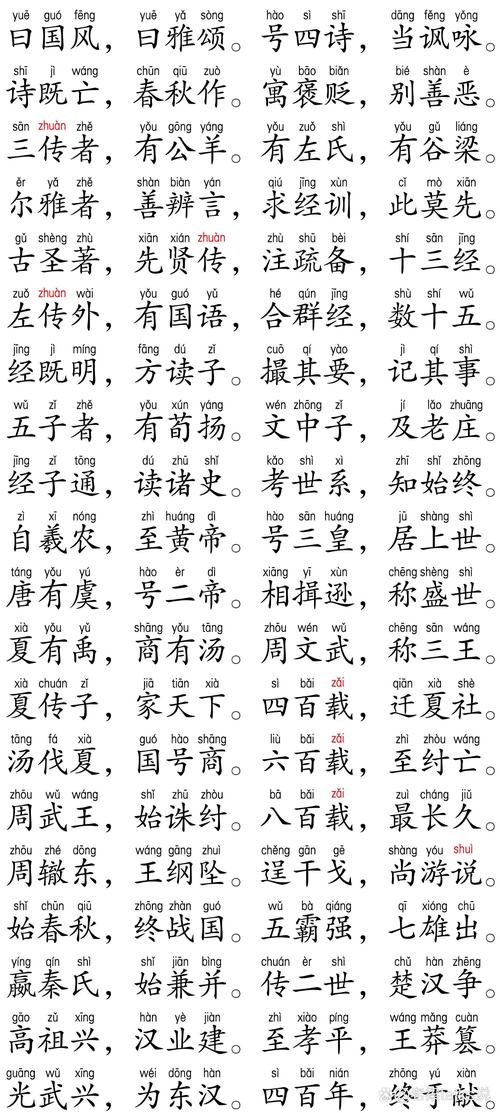 yuē guó fēng yuē yǎ sòng hào sì shī dāng fěng yǒng
曰国风，曰雅颂。号四诗，当讽咏。
shī jì wáng chūn qiū zuò yù bāo biǎn bié shàn è
诗既亡，春秋作。寓褒贬，别善恶。
sān zhuàn zhě yǒu gōng yáng yǒu zuǒ shì yǒu gǔ liáng
三传者，有公羊。有左氏，有谷梁。
ěr yǎ zhě shàn biàn yán qiú jīng xùn cǐ mò xiān
尔雅者，善辨言，求经训，此莫先。
gǔ shèng zhù xiān xián zhuàn zhù shū bèi shí sān jīng
古圣著，先贤传，注疏备，十三经。
zuǒ zhuàn wài yǒu guó yǔ hé qún jīng shù shí wǔ
左传外，有国语，合群经，数十五。
jīng jì míng fāng dú zǐ cuō qí yào jì qí shì
经既明，方读子。撮其要，记其事。
wǔ zǐ zhě yǒu xún yáng wén zhōng zǐ jí lǎo zhuāng
五子者，有荀扬。文中子，及老庄。
jīng zǐ tōng dú zhū shǐ kǎo shì xì zhī shǐ zhōng
经子通，读诸史。考世系，知始终。
zì xī nóng zhì huáng dì hào sān huáng jū shàng shì
自羲农，至黄帝。号三皇，居上世。
táng yǒu yú hào èr dì xiāng yī xùn chēng shèng shì
唐有虞，号二帝。相揖逊，称盛世。
xià yǒu yǔ shāng yǒu tāng zhōu wén wǔ chēng sān wáng
夏有禹，商有汤。周文武，称三王。
xià chuán zǐ jiā tiān xià sì bǎi zǎi qiān xià shè
夏传子，家天下。四百载，迁夏社。
tāng fá xià guó hào shāng liù bǎi zǎi zhì zhòu wáng
汤伐夏，国号商。六百载，至纣亡。
zhōu wǔ wáng shǐ zhū zhòu bā bǎi zǎi zuì cháng jiǔ
周武王，始诛纣。八百载，最长久。
zhōu zhé dōng wáng gāng zhuì chěng gān gē shàng yóu shuì
周辙东，王纲坠。逞干戈，尚游说。
shǐ chūn qiū zhōng zhàn guó wǔ bà qiáng qī xióng chū
始春秋，终战国。五霸强，七雄出。
yíng qín shì shǐ jiān bìng chuán èr shì chǔ hàn zhēng
嬴秦氏，始兼并。传二世，楚汉争。
gāo zǔ xīng hàn yè jiàn zhì xiào píng wáng mǎng cuàn
高祖兴，汉业建。至孝平，王莽篡。
guāng wǔ xīng wéi dōng hàn sì bǎi nián zhōng yú xiàn
光武兴，为东汉。四百年，终于献。